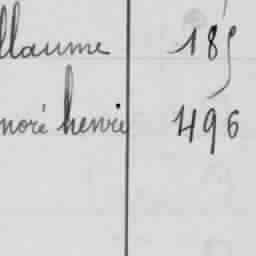 llaume 185
noré henri 496